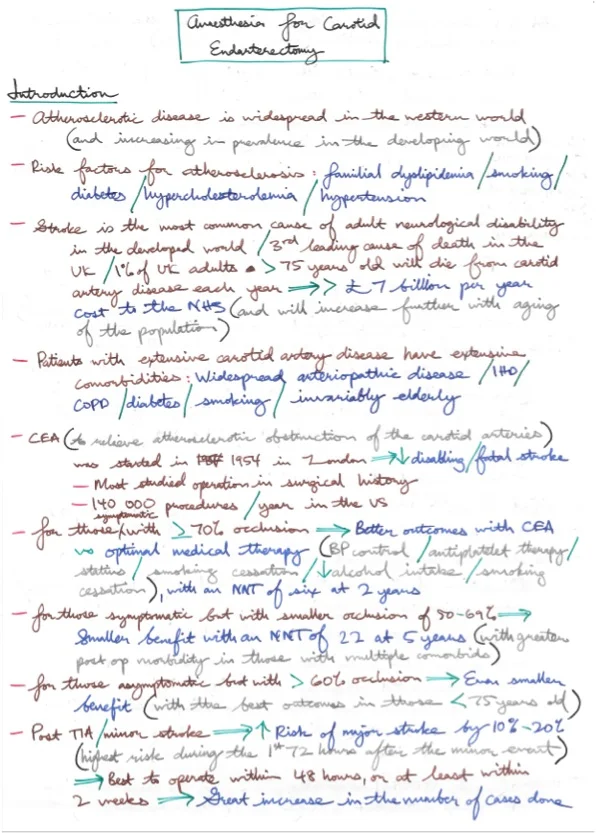 Anaesthesia for Carotid
Endarterectomy
Introduction
- Atherosclerotic disease is widespread in the western world
(and increasing in prevalence in the developing world)
- Risk factors for atherosclerosis: familial dyslipidemia/smoking/
diabetes/hypercholesterolemia/hypertension
- Stroke is the most common cause of adult neurological disability
in the developed world/3rd leading cause of death in the
UK/1% of UK adults > 75 years old will die from carotid
artery disease each year ⇒ > £7 billion per year
cost to the NHS (and will increase further with aging
of the population)
- Patients with extensive carotid artery disease have extensive
comorbidities: Widespread arteriopathic disease/IHD/
COPD/diabetes/smoking/invariably elderly
- CEA (to relieve atherosclerotic obstruction of the carotid arteries)
was started in 1954 in London ⇒ ↓ disabling/fatal stroke
- Most studied operation in surgical history
- 140 000 procedures/year in the US
- for those symptomatic with ≥ 70% occlusion ⇒ Better outcomes with CEA
vs optimal medical therapy (BP control/antiplatelet therapy/
statins/smoking cessation/↓ alcohol intake/smoking
cessation), with an NNT of six at 2 years
- for those symptomatic but with smaller occlusion of 50-69% ⇒
Smaller benefit with an NNT of 22 at 5 years (with greater
post op morbidity in those with multiple comorbids)
- for those asymptomatic but with > 60% occlusion ⇒ Even smaller
benefit (with the best outcomes in those < 75 years old)
- Post TIA/minor stroke ⇒ ↑ Risk of major stroke by 10%-20%
(highest risk during the 1st 72 hours after the minor event)
⇒ Best to operate within 48 hours, or at least within
2 weeks ⇒ Great increase in the number of cases done